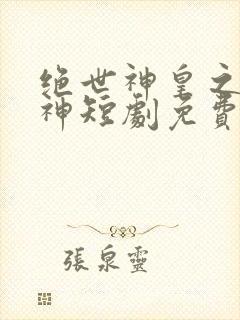 绝世神皇之
神短劇免費
張泉靈